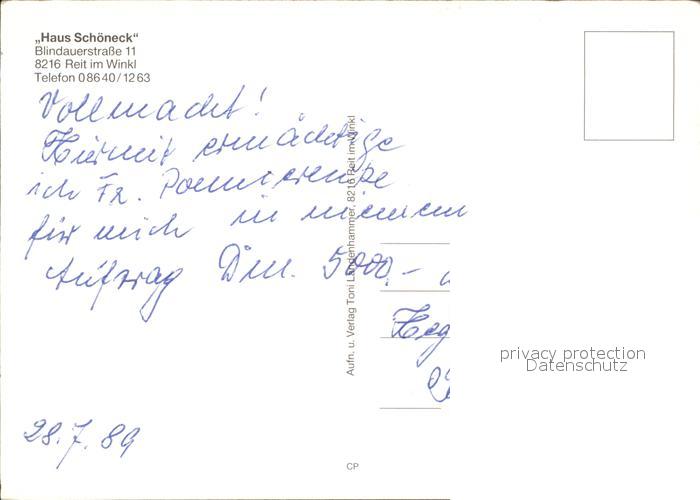 „Haus Schöneck“
Blindauerstraße 11
8216 Reit im Winkl
Telefon 08640/1263
Vollmacht!
Hiermit ermächtige
ich Fr.
für mich in meinem
Auftrag Dm. 5000,-
28.7.89
Aufn. u. Verlag Toni Lindenhammer, 8216 Reit im Winkl
CP
privacy protection
Datenschutz